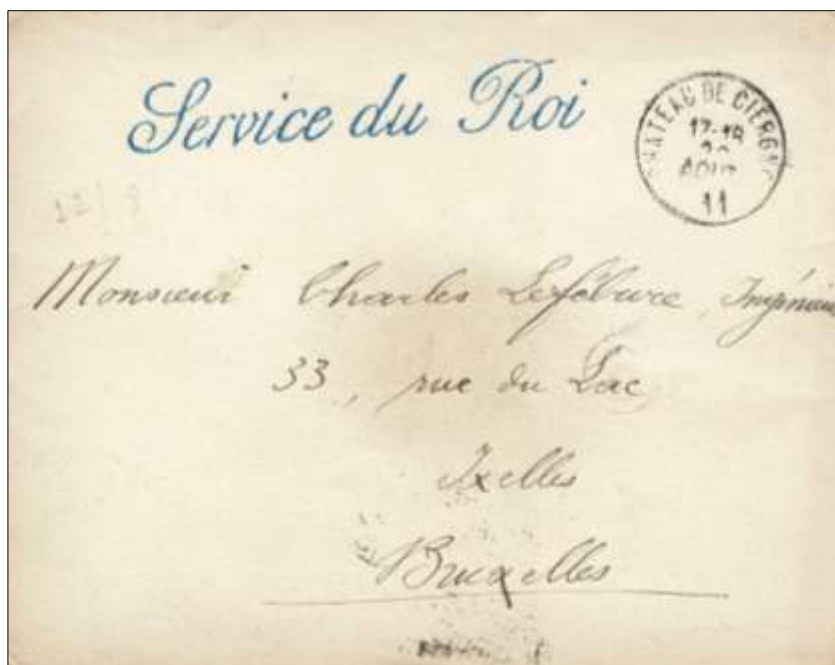 Service du Roi
CHATEAU DE CIERGNON
17-18
AOUT
11
Monsieur Charles Lefébure,
33, rue du Lac
Ixelles
Bruxelles